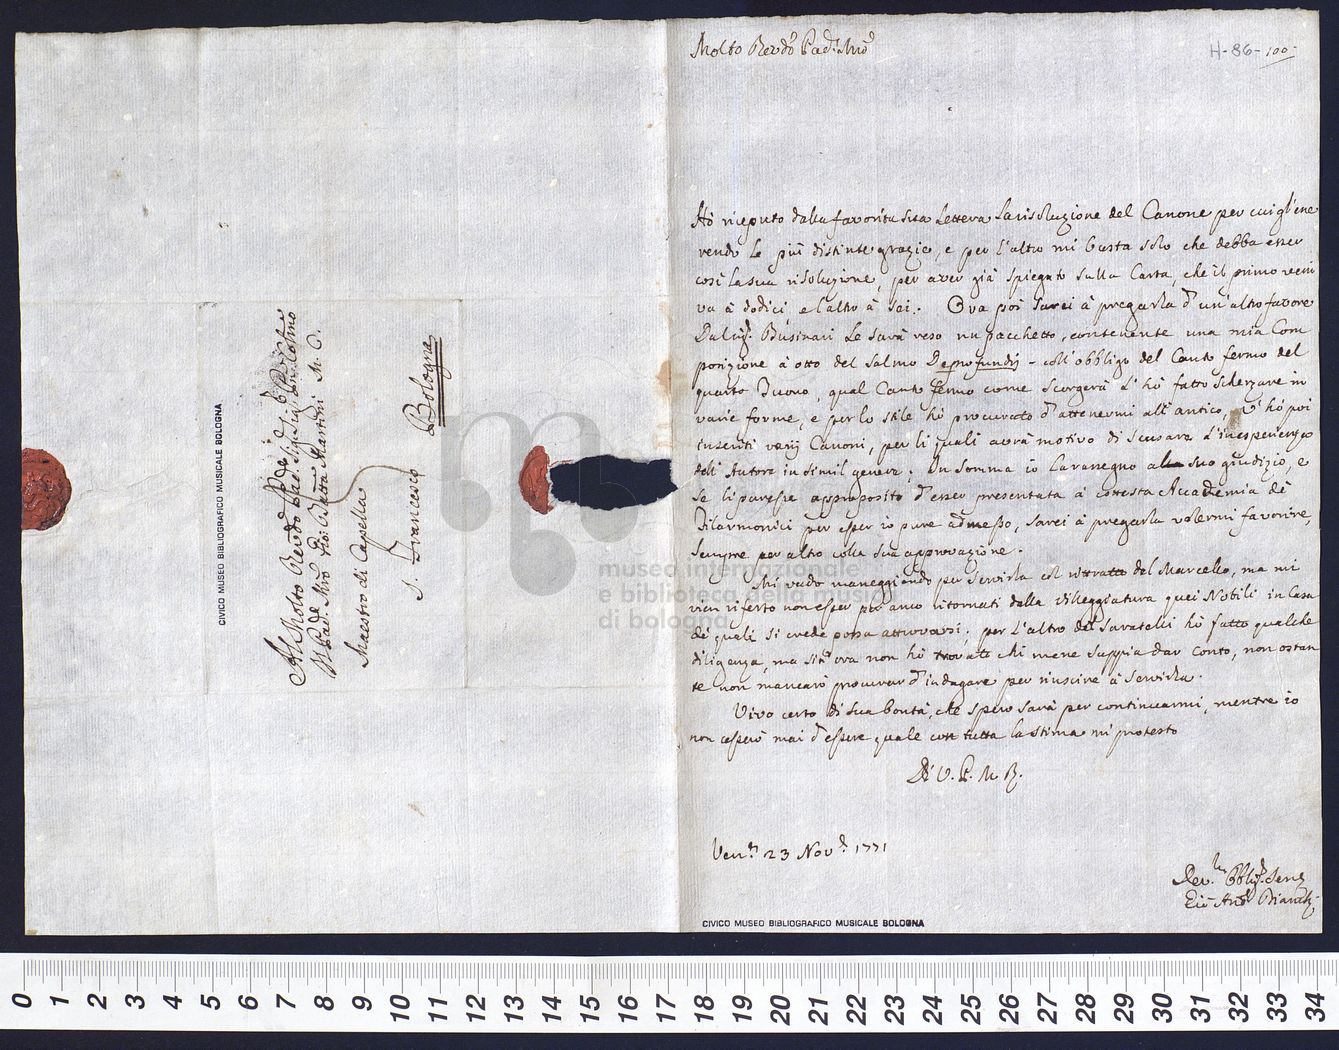 Molto Revdo Pad. Mro
H-86-100
Hò riceputo dalla favorita sua Lettera la risoluzione del Canone per cui gliene
rendo le più distinte grazie, e per l'altro mi basta solo che debba esser
così la sua risoluzione, per aver già spiegato sulla Carta, che il primo veni
va à dodici e l'altro à sei. Ora poi sarei à pregarla d'un'altro favore
Dal Businari Le sarà reso un pacchetto, contenente una mia Com
posizione à otto del Salmo De profundis - coll'obbligo del Canto fermo del
quarto Tuono, qual Canto fermo come scorgerà l'hò fatto scherzare in
varie forme, e per lo stile hò procurato d'attenermi all'antico, vi hò poi
inseriti varij Canoni, per li quali avrà motivo di scusare l'inesperienza
dell'Autore in simil genere. In somma io la rassegno al suo giudizio, e
se li paresse approposito d'esser presentata à cottesta Accademia de
Filarmonici per esser io pure admesso, sarei à pregarla volermi favorire,
sempre per altro colla sua approvazione.
Mi vado maneggiando per servirla col ritratto del Marcello, ma mi
vien riferto non esser per anco ritornati dalla villeggiatura quei Nobili in Casa
de quali si crede possa attrovarsi; per l'altro del Saratelli hò fatto qualche
diligenza, ma sin ora non hò trovato chi mene sappia dar conto, non ostan
te non mancarò procurar d'indagare per riuscire à servirla.
Vivo certo di sua bontà, che spero sarà per continuarmi, mentre io
non cesserò mai d'essere quale con tutta la stima mi protesto
Di V. P. M. R.
Ven. 23 Nov. 1771
Dev. Obblig. Serv
Gio Ant Bianchi
CIVICO MUSEO BIBLIOGRAFICO MUSICALE BOLOGNA
Al Molto Revdo Pade
Il Pad. Mro Gio: Batta Martini M. C.
Maestro di Capella
S. Francesco
Bologna
CIVICO MUSEO BIBLIOGRAFICO MUSICALE BOLOGNA
museo internazionale
e biblioteca della musica
di bologna
0 1 2 3 4 5 6 7 8 9 10 11 12 13 14 15 16 17 18 19 20 21 22 23 24 25 26 27 28 29 30 31 32 33 34